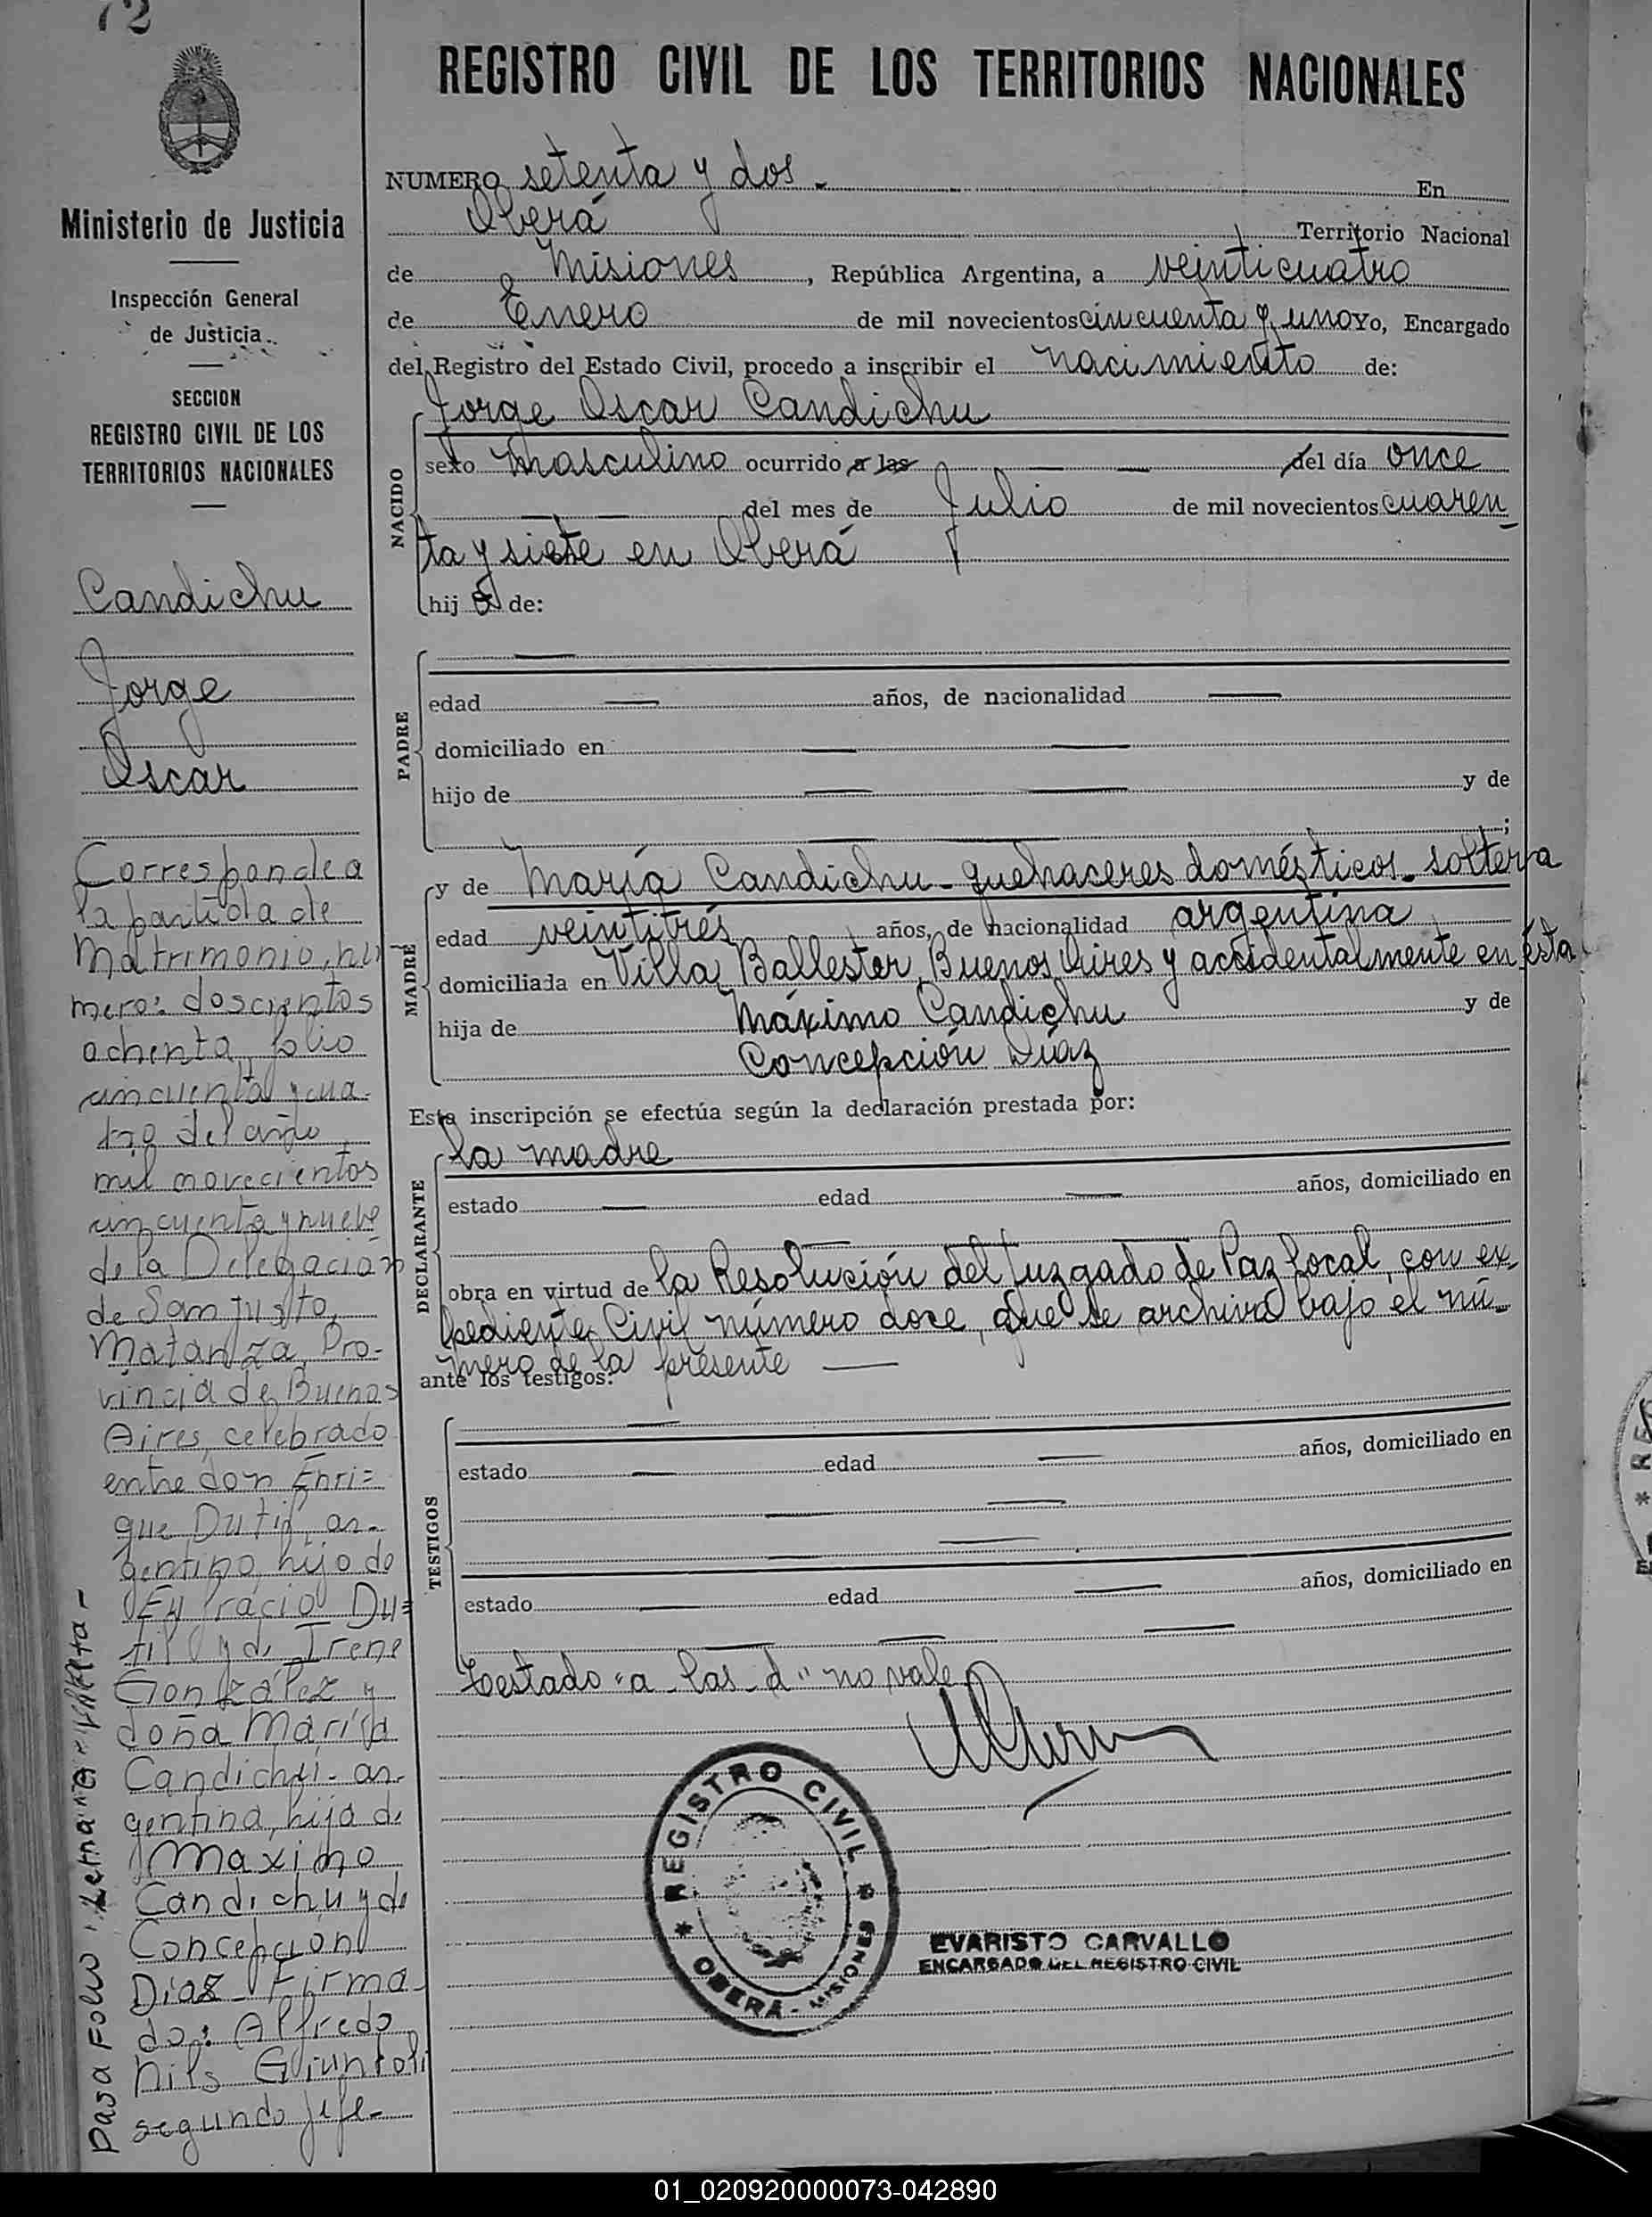 72
Ministerio de Justicia
Inspección General
de Justicia
SECCION
REGISTRO CIVIL DE LOS
TERRITORIOS NACIONALES
Candichu
Jorge
Oscar
Corresponde a
la partida de
Matrimonio, nú
mero: doscientos
ochenta, folio
cincuenta y cua-
tro del año
mil novecientos
cincuenta y nueve
de la Delegación
de San Justo,
Matanza, Pro-
vincia de Buenos
Aires, celebrado
entre don Enri=
que Dutil, ar-
gentino, hijo de
Eufracio Du=
til y de Irene
González y
doña María
Candichu - ar-
gentina, hija de
Maximo
Candichu y de
Concepción
Díaz - Firma
do: Alfredo
Nils Giuntoli
segundo jefe-
Pasa Folio vuelta -
REGISTRO CIVIL DE LOS TERRITORIOS NACIONALES
NUMERO setenta y dos - En
Oberá Territorio Nacional
de Misiones, República Argentina, a veinticuatro
de Enero de mil novecientos cincuenta y uno Yo, Encargado
del Registro del Estado Civil, procedo a inscribir el nacimiento de:
NACIDO
Jorge Oscar Candichu
sexo masculino ocurrido a las — — del día once
— — del mes de Julio de mil novecientos cuaren
ta y siete en Oberá
hijo de:
PADRE
—
edad — años, de nacionalidad —
domiciliado en — —
hijo de — — y de
— — ;
MADRE
y de María Candichu - quehaceres domésticos - soltera
edad veintitrés años, de nacionalidad argentina
domiciliada en Villa Ballester, Buenos Aires y accidentalmente en ésta
hija de Máximo Candichu y de
Concepción Díaz
Esta inscripción se efectúa según la declaración prestada por:
DECLARANTE
la madre
estado — edad — años, domiciliado en
— —
obra en virtud de la Resolución del Juzgado de Paz local, con ex-
pediente Civil número doce, que se archiva bajo el nú-
mero de la presente —
ante los testigos:
TESTIGOS
—
estado — edad — años, domiciliado en
— —
— —
estado — edad — años, domiciliado en
— — —
Testado "a - las - d" no vale
REGISTRO CIVIL
* OBERÁ - MISIONES *
EVARISTO CARVALLO
ENCARGADO DEL REGISTRO CIVIL
* REG
01_020920000073-042890